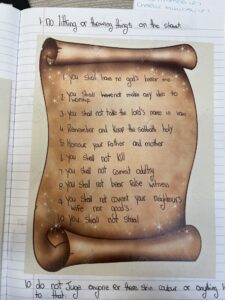 1. No littring or throwing things on the street
1. you shall have no god's before me
2. you shall not make any idol to
worship
3. you shall not take the lord's name in vain
4. Remember and keep the sabbath holy
5. Honour your father and mother
6. you shall not kill
7. you shall not commit adultry
8. you shall not bear false witness
9. you shall not covert your neighbour's
wife nor goods.
10. you shall not steal
10. do not Juge anyone for there skin coulour or anything
to that.